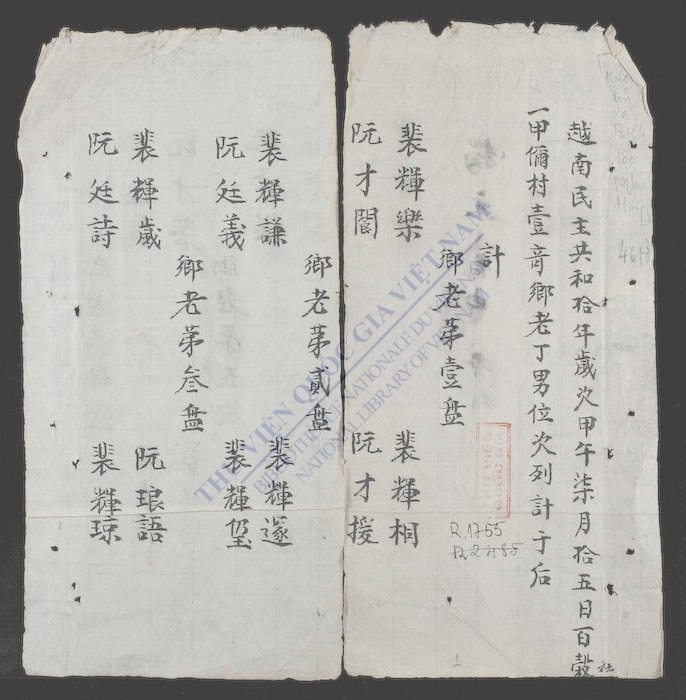 越南民主共和拾年歲次甲午柒月拾五日百穀社
一甲儞村壹鄉老丁男位次列計于后
計
鄉老苐壹盘
裴輝樂 裴輝桐
阮才 阮才援
鄉老苐貳盘
裴輝謙 裴輝遂
阮廷義 裴輝
鄉老苐叁盘
裴輝歲 阮琅語
阮廷詩 裴輝琼
THƯ VIỆN QUỐC GIA VIỆT NAM
BIBLIOTHÈQUE NATIONALE DU VIETNAM
NATIONAL LIBRARY OF VIETNAM
R.1755
1